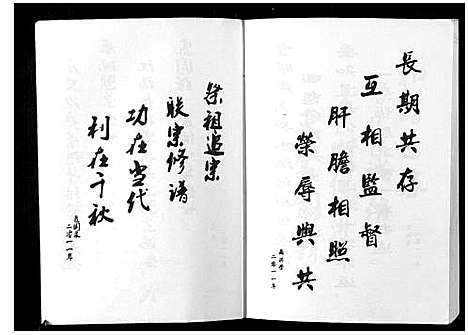 長期共存
互相監督
肝膽相照
榮辱與共
二零一一年
祭祖追宗
联宗修譜
功在当代
利在千秋
二零一一年